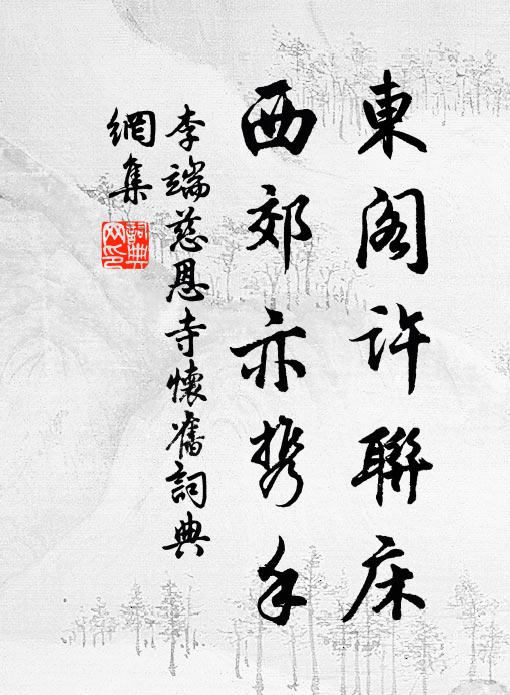 東閣許聯床
西郊亦攜手
李端慈恩寺懷舊詞典
網集
詞典
网印